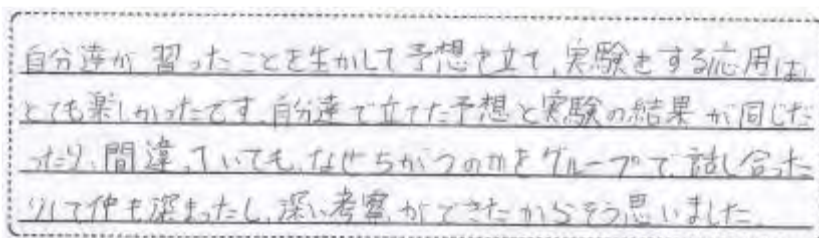 自分達が習ったことを生かして予想を立て、実験をする応用は、
とても楽しかったです。自分達で立てた予想と実験の結果が同じだ
ったり、間違っていても、なぜちがうのかをグループで話し合った
りして仲も深まったし、深い考察ができたからそう思いました。